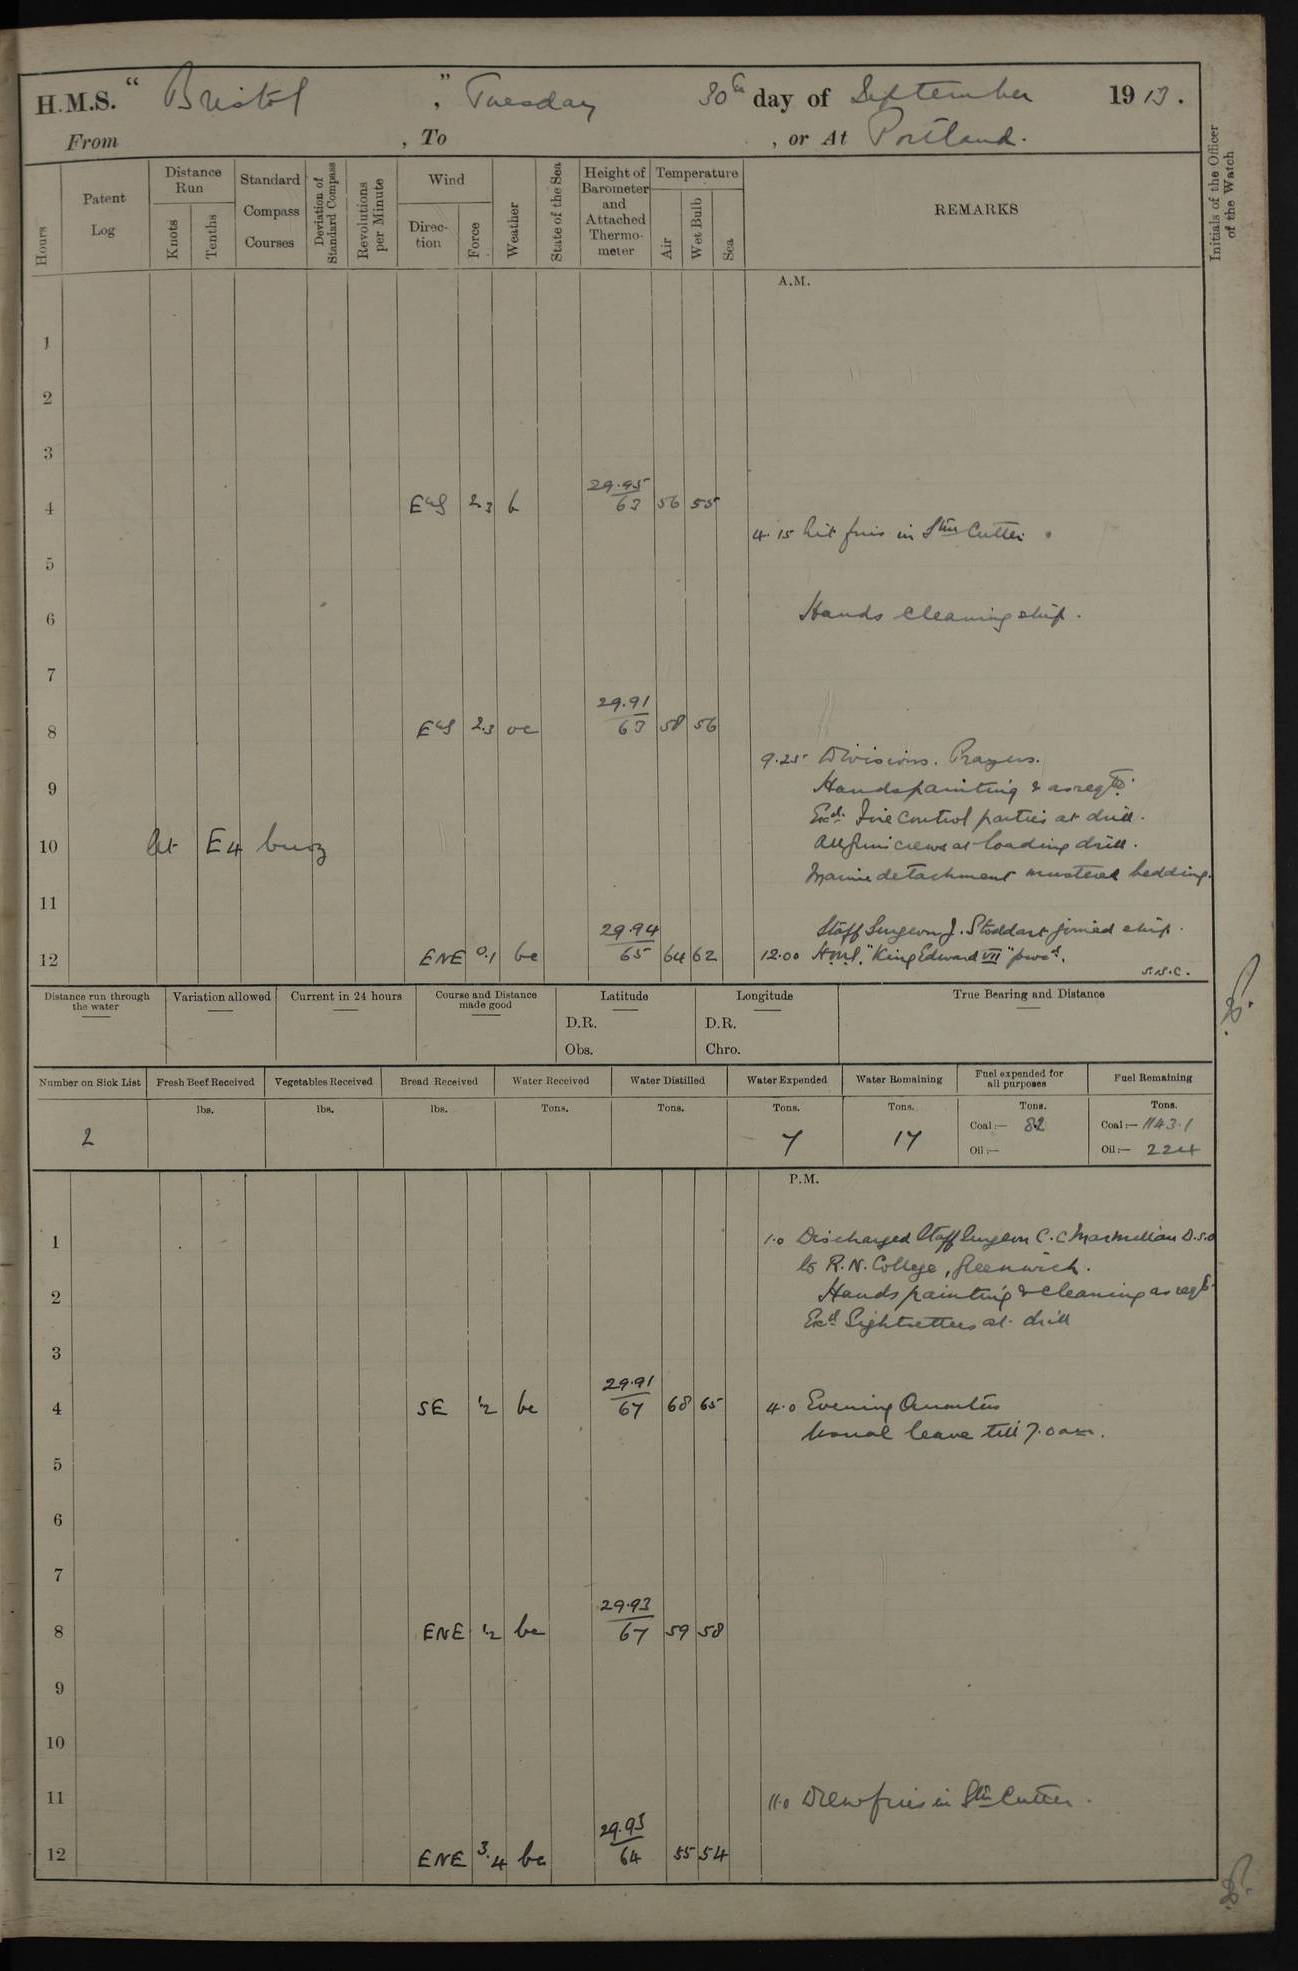 H.M.S. "Bristol", Tuesday 30th day of September 1913.
From , To , or At Portland.
Hours
Patent Log
Distance Run
Knots
Tenths
Standard Compass Courses
Deviation of Standard Compass
Revolutions per Minute
Wind
Direction
Force
Weather
State of the Sea
Height of Barometer and Attached Thermometer
Temperature
Air
Wet Bulb
Sea
REMARKS
Initials of the Officer of the Watch
A.M.
1
2
3
4 EdS 2.3 b 29.95/63 56 55
4.15 Lit fires in Stm Cutter.
5
6 Hands cleaning ship.
7
8 EdS 2.3 oc 29.91/63 58 56
9.25 Divisions. Prayers.
9 Hands painting & as reqte.
Exd. Fire Control parties at drill.
10 At E4 buoy All Guns crews at loading drill.
Marine detachment mustered bedding.
11
Staff Surgeon J. Stoddart joined ship.
12 ENE 0.1 bc 29.94/65 64 62 12.00 H.M.S. "King Edward VII" procd.
S.N.C.
Distance run through the water
Variation allowed
Current in 24 hours
Course and Distance made good
Latitude
D.R.
Obs.
Longitude
D.R.
Chro.
True Bearing and Distance
Number on Sick List
Fresh Beef Received
Vegetables Received
Bread Received
Water Received
Water Distilled
Water Expended
Water Remaining
Fuel expended for all purposes
Fuel Remaining
lbs. lbs. lbs. Tons. Tons. Tons. Tons. Tons. Tons.
2 7 17 Coal:— 82 Coal:— 1143.1
Oil:— Oil:— 224
P.M.
1 1.0 Discharged Staff Surgeon C.C Macmillan D.S.O
to R.N. College, Greenwich.
2 Hands painting & cleaning as reqte.
Exd Sightsetters at drill
3
4 SE 1/2 bc 29.91/67 68 65 4.0 Evening Quarters
Usual leave till 7.0 am.
5
6
7
8 ENE 1/2 bc 29.93/67 59 58
9
10
11 11.0 Drew fires in Stm Cutter.
12 ENE 3.4 bc 29.93/64 55 54